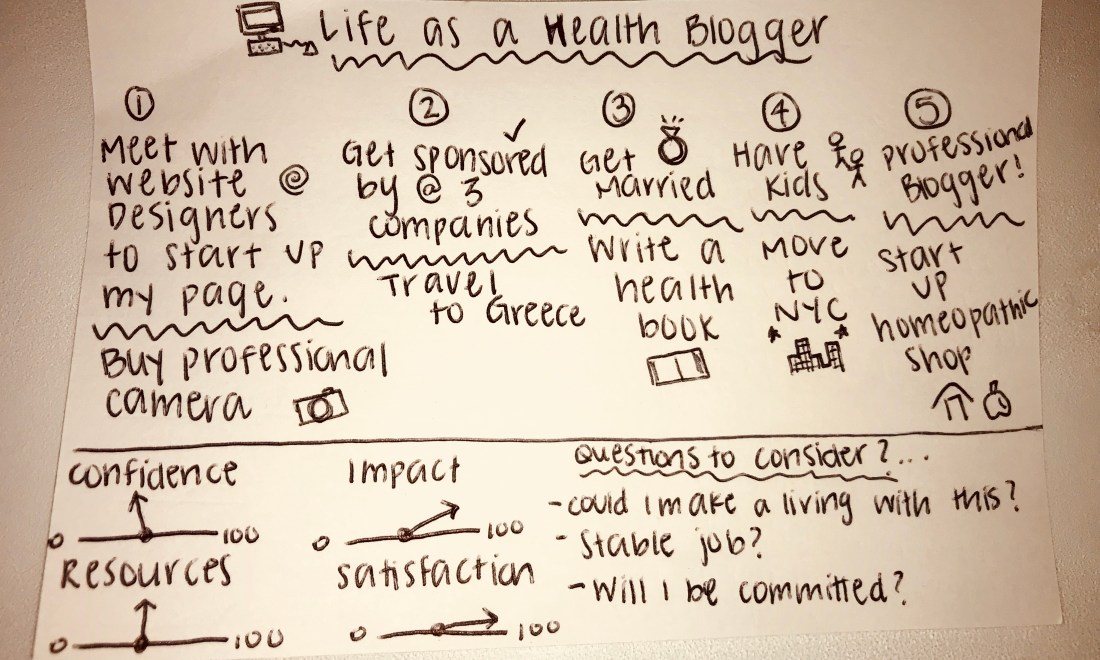 Life as a Health Blogger
1
Meet with
website @
Designers
to start up
my page.
Buy professional
camera
2
Get sponsored
by @ 3
companies
Travel
to Greece
3
Get
Married
Write a
health
book
4
Have
Kids
Move
to
NYC
5
professional
Blogger!
start
up
homeopathic
shop
confidence
0 100
Impact
0 100
Resources
0 100
satisfaction
0 100
Questions to consider?...
-could I make a living with this?
- Stable job?
- Will I be committed?